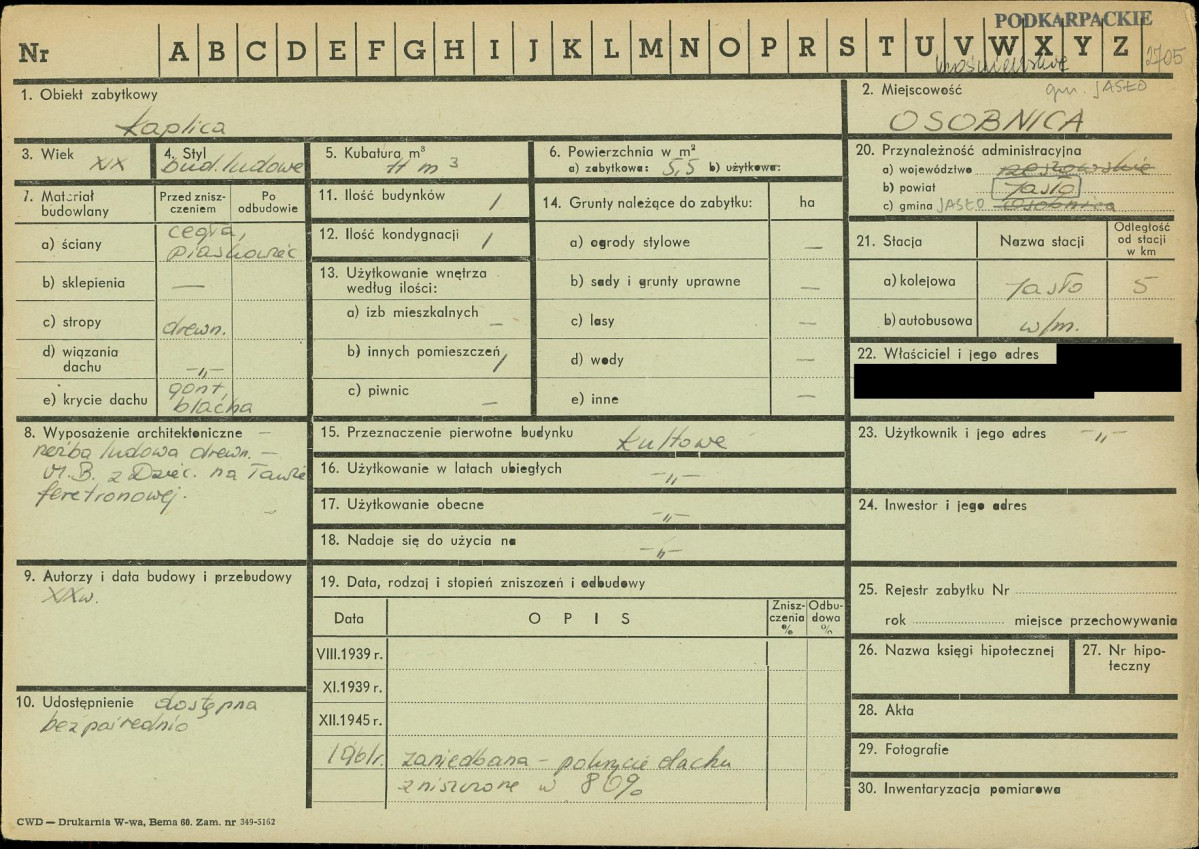 PODKARPACKIE
Nr A B C D E F G H I J K L M N O P R S T U V W X Y Z 2705
1. Obiekt zabytkowy
kaplica
2. Miejscowość gm. JASŁO
OSOBNICA
3. Wiek XIX
4. Styl bud. ludowe
5. Kubatura m³ 11 m³
6. Powierzchnia w m²
a) zabytkowa: 5,5 b) użytkowa:
20. Przynależność administracyjna
a) województwo rzeszowskie
b) powiat Jasło
c) gmina JASŁO Osobnica
7. Materiał budowlany
Przed zniszczeniem
Po odbudowie
a) ściany cegła, piaskowiec
b) sklepienia —
c) stropy drewn.
d) wiązania dachu -„-
e) krycie dachu gont, blacha
11. Ilość budynków 1
12. Ilość kondygnacji 1
13. Użytkowanie wnętrza według ilości:
a) izb mieszkalnych —
b) innych pomieszczeń 1
c) piwnic —
14. Grunty należące do zabytku: ha
a) ogrody stylowe —
b) sady i grunty uprawne —
c) lasy —
d) wody —
e) inne —
21. Stacja Nazwa stacji Odległość od stacji w km
a) kolejowa Jasło 5
b) autobusowa w/m.
22. Właściciel i jego adres
8. Wyposażenie architektoniczne —
rzeźba ludowa drewn. —
M.B. z Dziec. na ławie
feretronowej.
15. Przeznaczenie pierwotne budynku kultowe
16. Użytkowanie w latach ubiegłych -„-
17. Użytkowanie obecne -„-
18. Nadaje się do użycia na -„-
23. Użytkownik i jego adres -„-
24. Inwestor i jego adres
9. Autorzy i data budowy i przebudowy
XIXw.
19. Data, rodzaj i stopień zniszczeń i odbudowy
Data OPIS Zniszczenia % Odbudowa %
VIII.1939 r.
XI.1939 r.
XII.1945 r.
1961r. zaniedbana — pokrycie dachu
zniszczone w 80%
25. Rejestr zabytku Nr
rok miejsce przechowywania
26. Nazwa księgi hipotecznej
27. Nr hipoteczny
10. Udostępnienie dostępna
bezpośrednio
28. Akta
29. Fotografie
30. Inwentaryzacja pomiarowa
CWD — Drukarnia W-wa, Bema 60. Zam. nr 349-5162